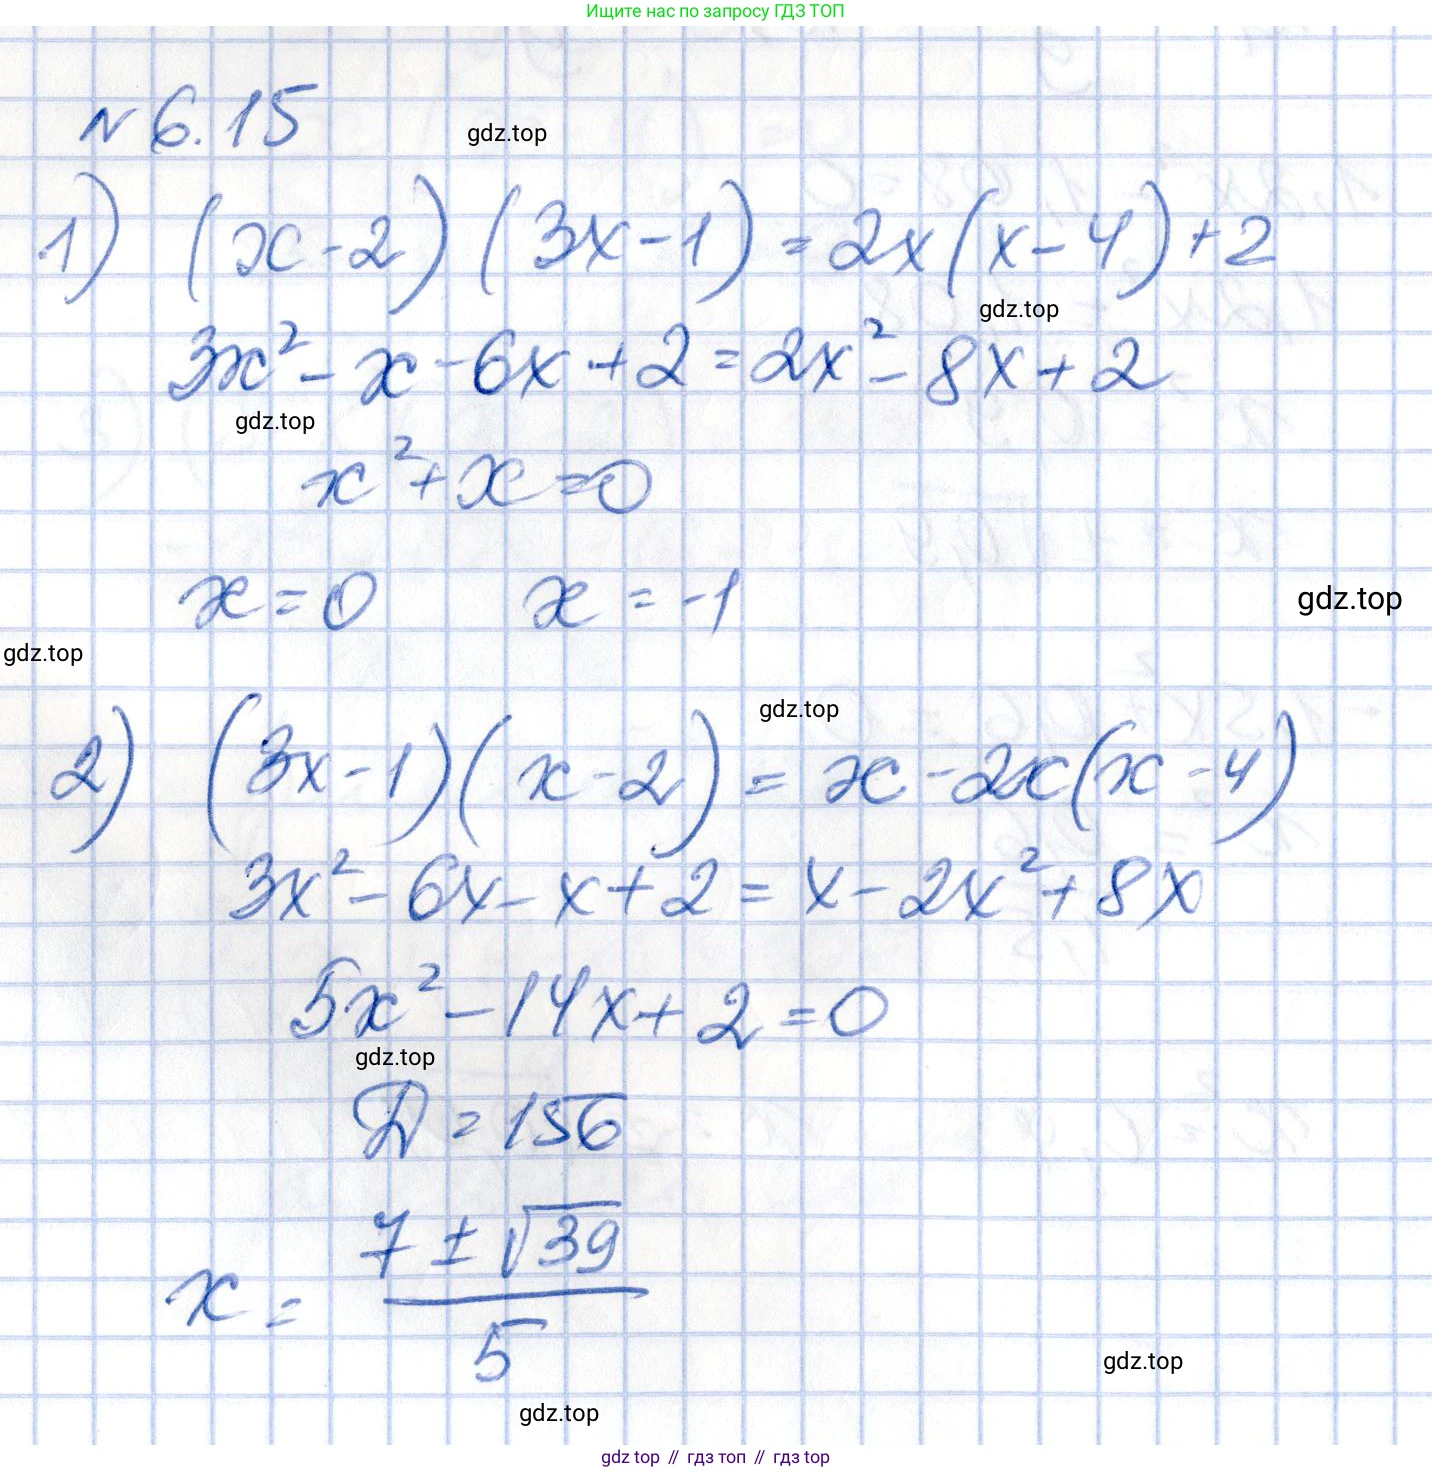 Ищите нас по запросу ГДЗ ТОП
№ 6.15
gdz.top
1) (x - 2) (3x - 1) = 2x (x - 4) + 2
gdz.top
3x² - x - 6x + 2 = 2x² - 8x + 2
gdz.top
x² + x = 0
x = 0 x = -1
gdz.top
gdz.top
gdz.top
2) (3x - 1) (x - 2) = x - 2x (x - 4)
3x² - 6x - x + 2 = x - 2x² + 8x
5x² - 14x + 2 = 0
gdz.top
D = 156
x = (7 ± √39) / 5
gdz.top
gdz.top
gdz top // гдз топ // гдз top